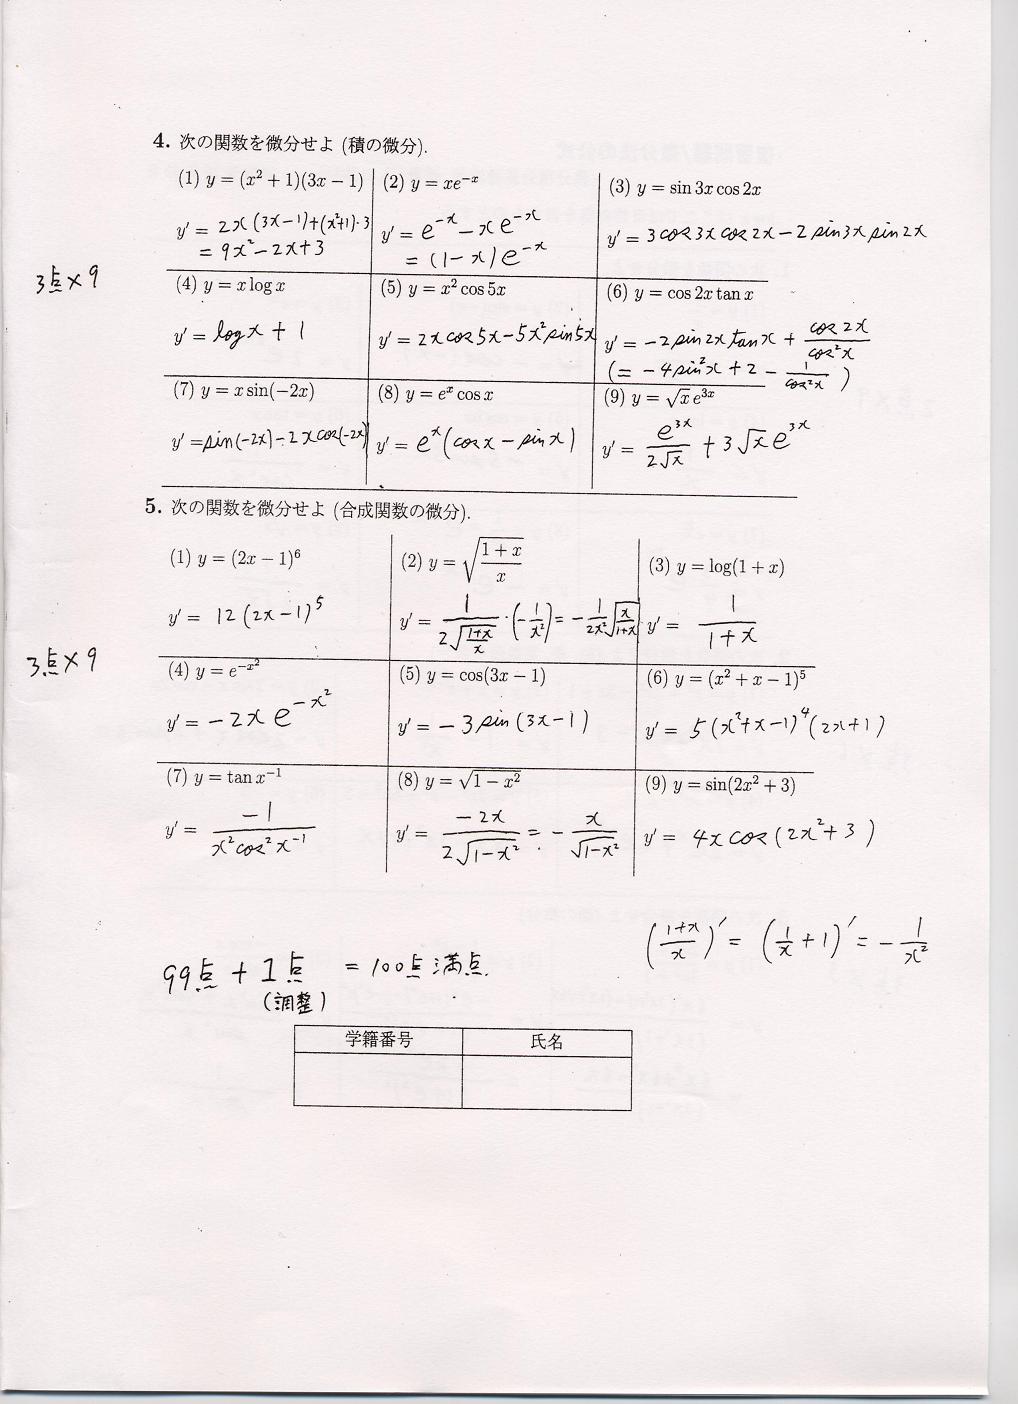 4. 次の関数を微分せよ (積の微分).
(1) y = (x² + 1)(3x − 1)
y' = 2x(3x−1)+(x²+1)·3
= 9x²−2x+3
(2) y = xe⁻ˣ
y' = e⁻ˣ − xe⁻ˣ
= (1−x)e⁻ˣ
(3) y = sin 3x cos 2x
y' = 3cos3x cos2x − 2sin3x sin2x
3点×9
(4) y = x log x
y' = log x + 1
(5) y = x² cos 5x
y' = 2x cos5x − 5x² sin5x
(6) y = cos 2x tan x
y' = −2sin2x tanx + cos2x/cos²x
(= −4sin²x + 2 − 1/cos²x)
(7) y = x sin(−2x)
y' = sin(−2x) − 2x cos(−2x)
(8) y = eˣ cos x
y' = eˣ(cosx − sinx)
(9) y = √x e³ˣ
y' = e³ˣ/2√x + 3√x e³ˣ
5. 次の関数を微分せよ (合成関数の微分).
(1) y = (2x − 1)⁶
y' = 12(2x−1)⁵
(2) y = √((1 + x)/x)
y' = 1/(2√((1+x)/x)) · (−1/x²) = −1/2x² √(x/(1+x))
(3) y = log(1 + x)
y' = 1/(1+x)
3点×9
(4) y = e^(−x²)
y' = −2x e^(−x²)
(5) y = cos(3x − 1)
y' = −3sin(3x−1)
(6) y = (x² + x − 1)⁵
y' = 5(x²+x−1)⁴(2x+1)
(7) y = tan x⁻¹
y' = −1/(x²cos²x⁻¹)
(8) y = √(1 − x²)
y' = −2x/(2√(1−x²)) = −x/√(1−x²)
(9) y = sin(2x² + 3)
y' = 4x cos(2x²+3)
((1+x)/x)' = (1/x + 1)' = −1/x²
99点 + 1点 = 100点満点.
(調整)
学籍番号 氏名